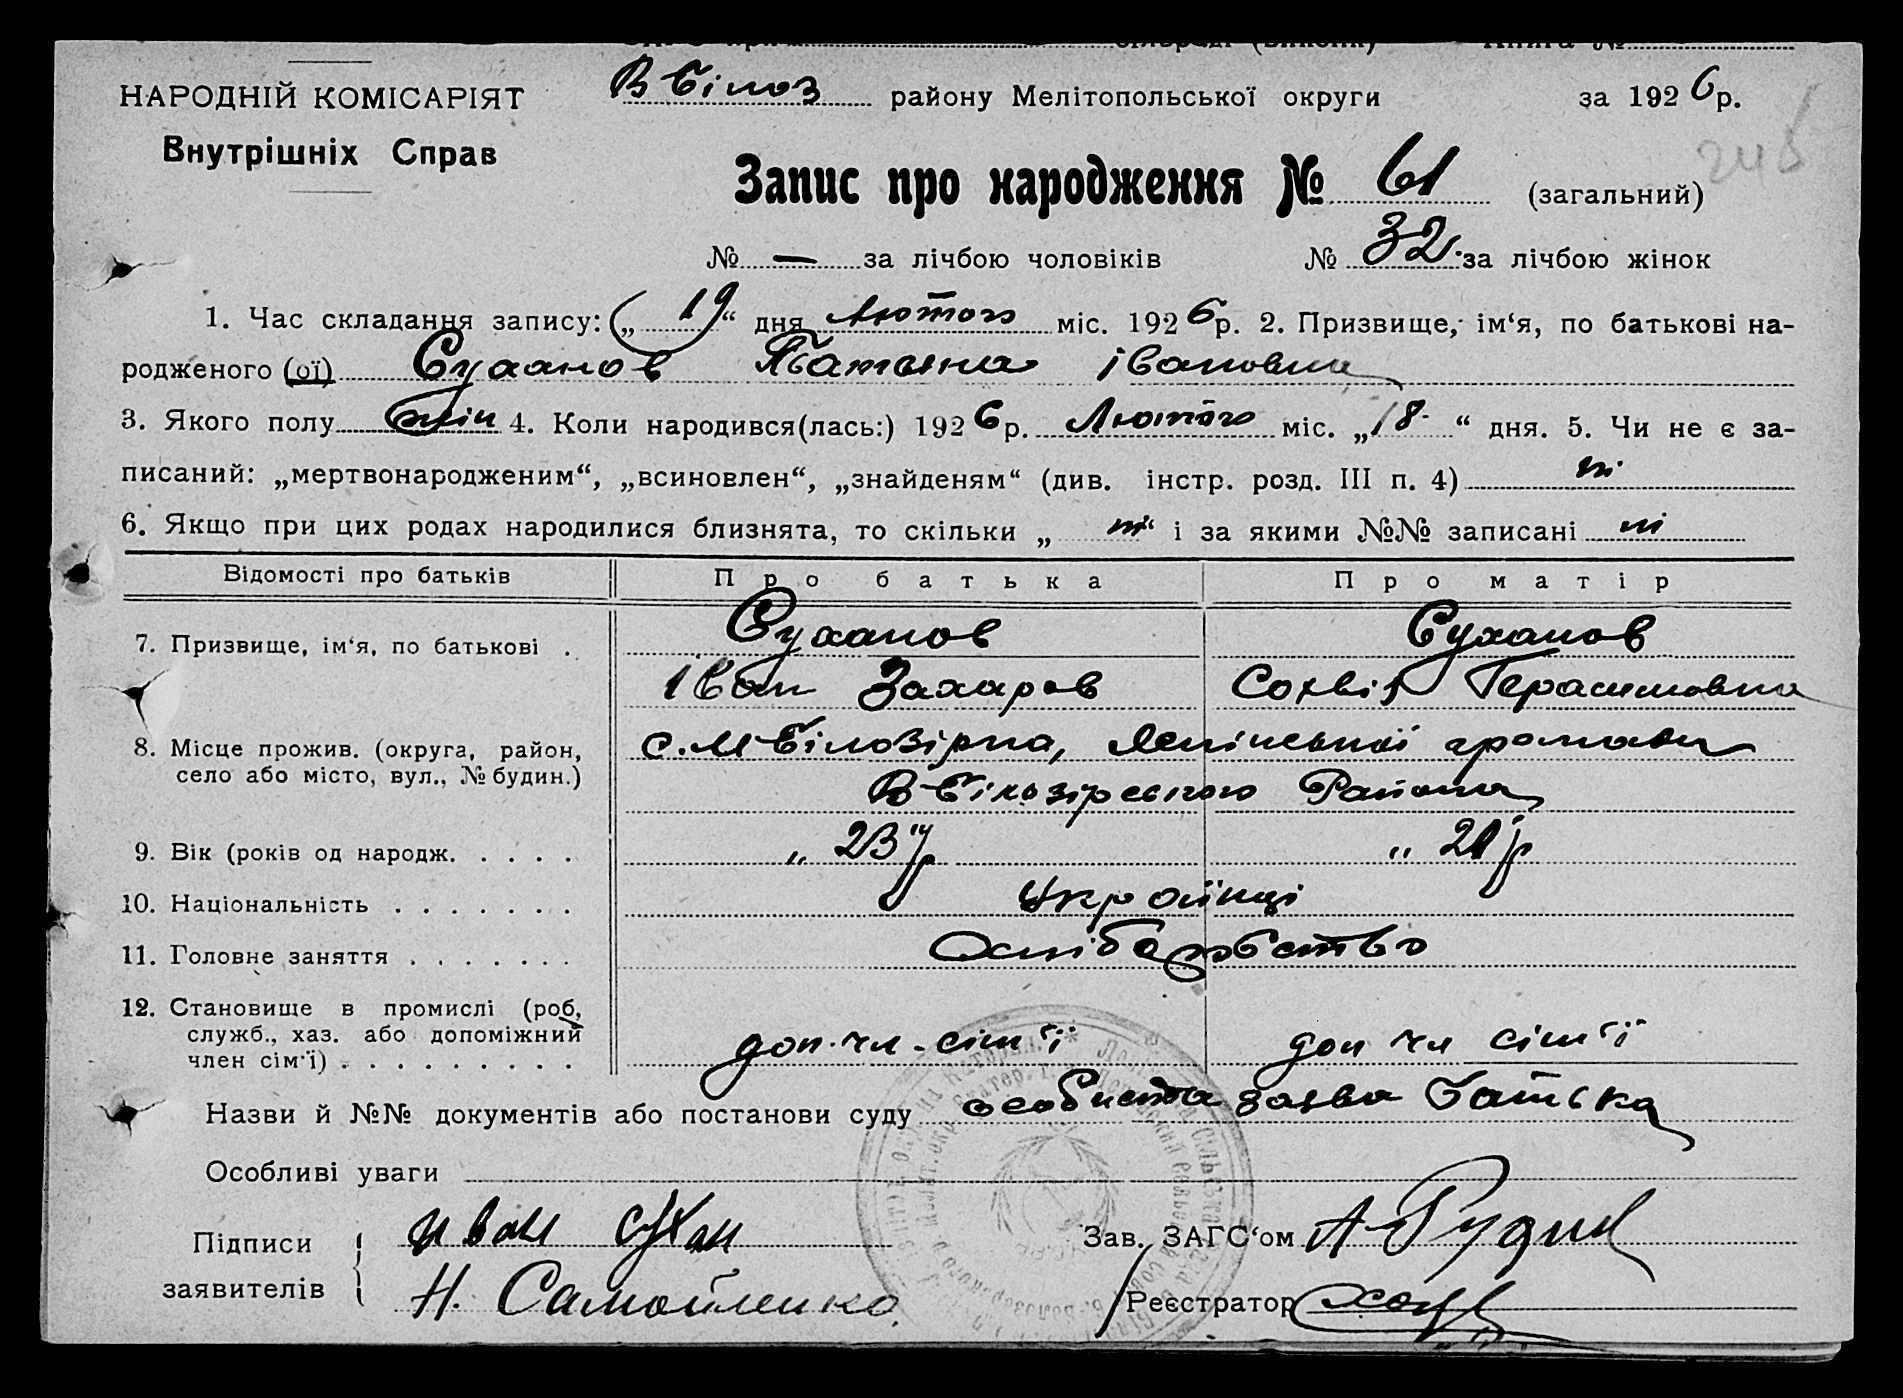 НАРОДНІЙ КОМІСАРІЯТ
Внутрішніх Справ
В Білоз району Мелітопольської округи за 1926р.
Запис про народження № 61 (загальний)
№ — за лічбою чоловіків № 32 за лічбою жінок
1. Час складання запису: „19“ дня Лютого міс. 1926р. 2. Призвище, ім‘я, по батькові на-
родженого (ої) Суханов Татьяна Івановна
3. Якого полу жін 4. Коли народився(лась:) 1926р. Лютого міс. „18“ дня. 5. Чи не є за-
писаний: „мертвонародженим“, „всиновлен“, „знайденям“ (див. інстр. розд. III п. 4) ні
6. Якщо при цих родах народилися близнята, то скільки „ні“ і за якими №№ записані ні
Відомості про батьків Про батька Про матір
7. Призвище, ім‘я, по батькові . Суханов Суханов
Іван Захаров Сохвія Герасимовна
8. Місце прожив. (округа, район, село або місто, вул., № будин.) с. М Білозірка, громади
В-Білозірського Района
9. Вік (років од народж. . . . . „ 23 р „ 21 р
10. Національність . . . . . . . Українці
11. Головне заняття . . . . . . . Хліборобство
12. Становище в промислі (роб, служб., хаз. або допоміжний член сім‘ї) . . . . . . . . . . доп. чл. сім‘ї доп чл сім‘ї
Назви й №№ документів або постанови суду особиста заява батька
Особливі уваги
Підписи заявителів Иван Сухан Зав. ЗАГС‘ом А Рудик
Н. Самойленко Реєстратор